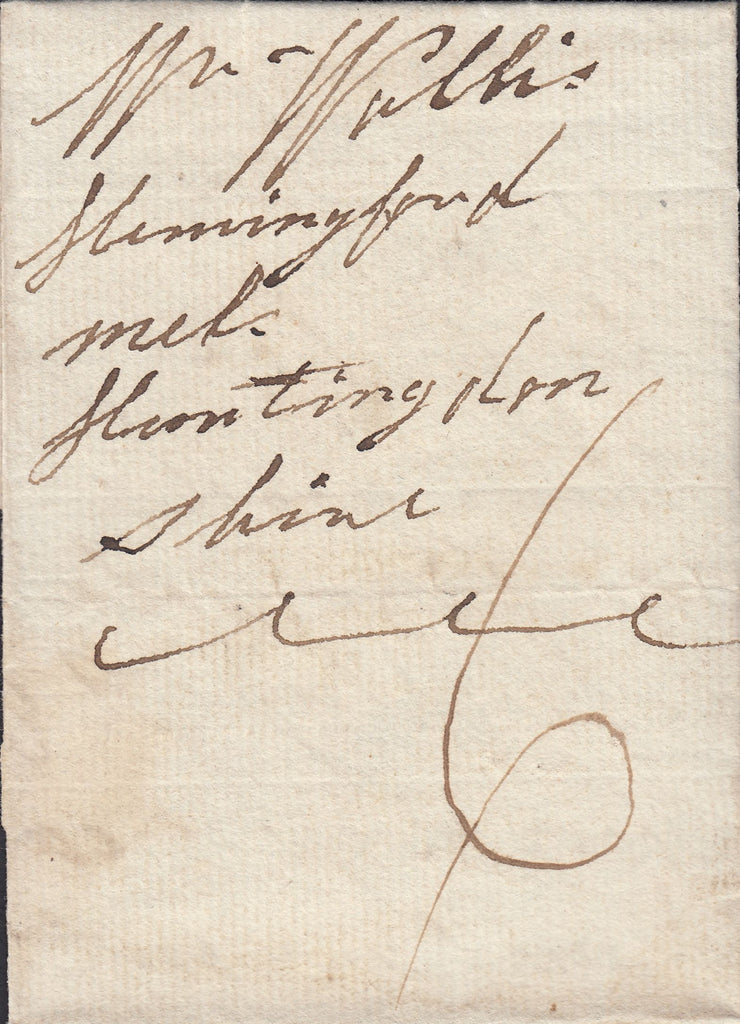 Mr Wallis
Hemingford
mel.
Huntingdon
shire
6